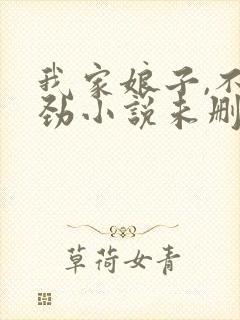 我家娘子,不
劲小说未删
草荷女青